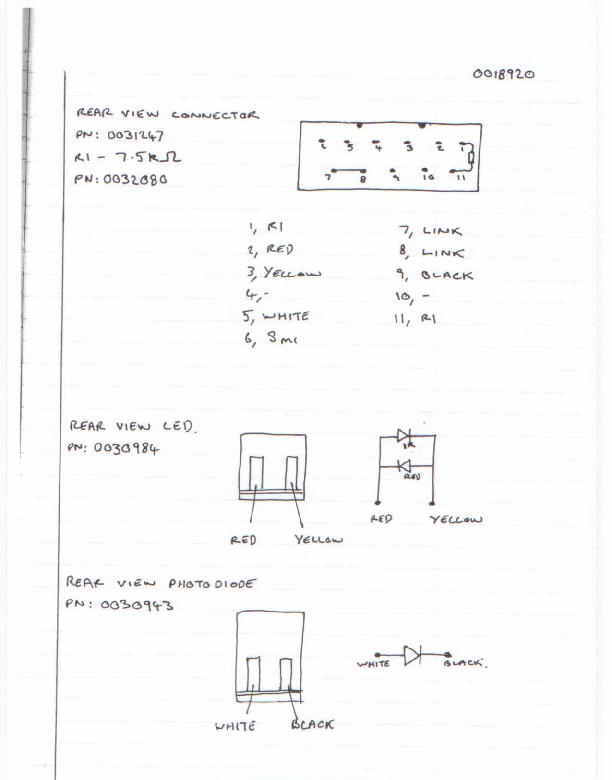 0018920
REAR VIEW CONNECTOR
PN: 0031247
R1 - 7.5KΩ
PN: 0032080
6 5 4 3 2 1
7 8 9 10 11
1, R1
2, RED
3, YELLOW
4, -
5, WHITE
6,
7, LINK
8, LINK
9, BLACK
10, -
11, R1
REAR VIEW LED.
PN: 0030984
RED YELLOW
IR
RED
RED YELLOW
REAR VIEW PHOTODIODE
PN: 0030943
WHITE BLACK
WHITE BLACK.